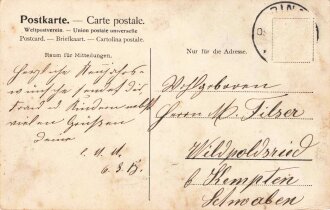 Postkarte. — Carte postale.
Weltpostverein. — Union postale universelle
Postcard. — Briefkaart. — Cartolina postale.
Raum für Mitteilungen.
Nur für die Adresse.
Herzliche Neujahrs-
wünsche sendet dir,
Frau & Kindern nebst
vielen Grüssen
Wohlgeboren
Herrn M. Filser
Wildpoldsried
b. Kempten
Schwaben